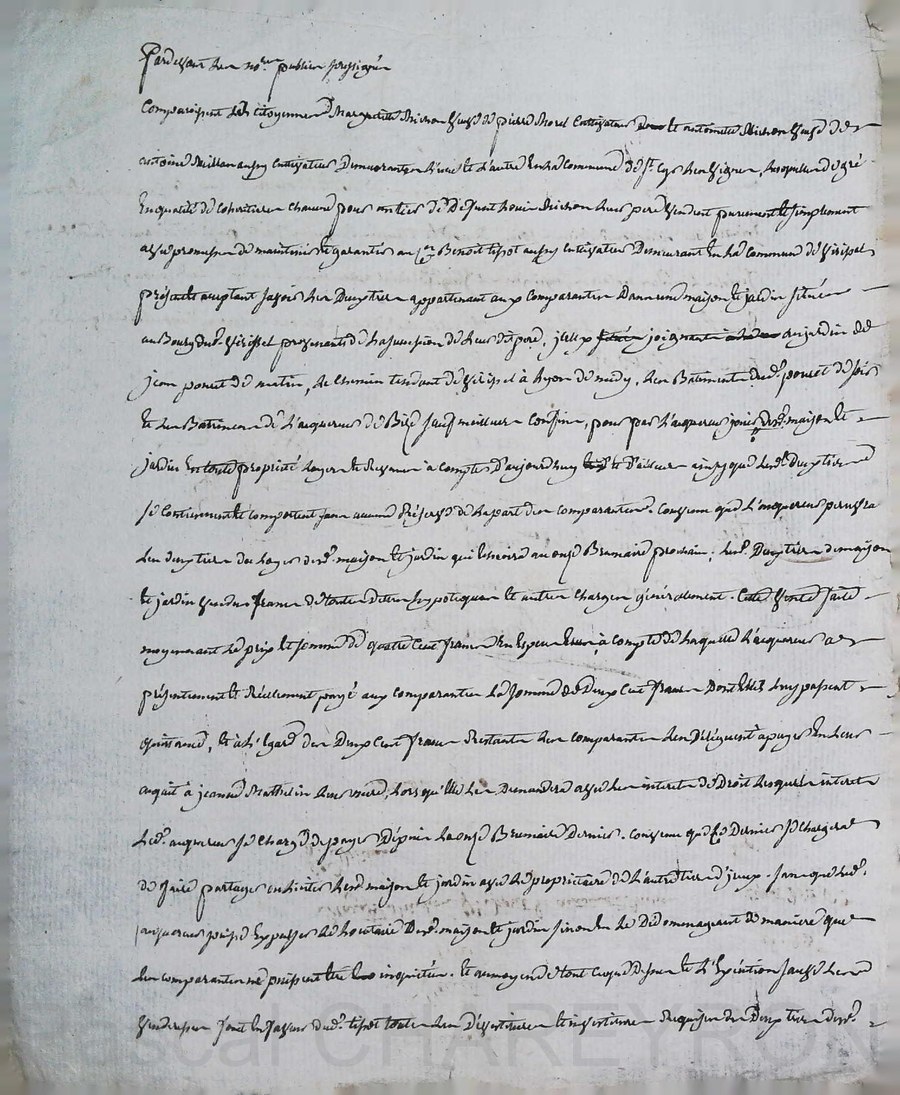 Pardevant les no.res publics soussignés
Comparoissent les citoyennes Marguerite Michon veuve de pierre Morel Cultivateur et antoinette Michon veuve de
antoine Millan aussy Cultivateur Demeurantes l'une et l'autre En la Commune de st Cyr Lesquelles de gré
En qualité de Cohéritieres chacune pour un tiers de Defunt Michon leur pere vendent purement et simplement
avec promesse de maintenir et garantir au Cen Benoit tipot aussy Cultivateur Demeurant En la Commune de
présent et aceptant savoir Les Deux tiers appartenant aux Comparantes Dans une maison et jardin situés
au Bourg dud. provenants de la succession de leur dit pere, joignant au jardin de
jean ponset de matin, le chemin tendant de à Lyon de midy, les Batiments dud. ponset de soir
et les Batiments de L'acquereur de Bize sauf meilleurs Confins, pour par L'acquereur jouir desd. maison et
jardin en toute propriété à Compter D'aujourd'huy et ainsy que lesd. Deux tiers
se Contiennent et comportent sans aucune Réserve de la part des comparantes. Convenu que L'acquereur percevra
Les deux tiers du Loyer desd. maison et jardin qui au onze Brumaire prochain; lesd. Deux tiers de maison
et jardin vendus francs de toutes dettes hypoteques et autres charges généralement. Cette vente faite
moyennant Le prix et somme de quatre Cent francs En especes à compte de Laquelle L'acquereur a
présentement et Réellement payé aux comparantes La somme de Deux Cent francs Dont Elles Luy passent
quittance, et à L'égard des Deux Cent francs Restants Les comparantes Les Déleguent à payer En leur
acquit à jeanne Mathelin leur mere, Lorsqu'Elle Les Demandera avec Les interets de Droit Lesquels interets
Led. acquereur se Charge de payer Depuis Le onze Brumaire Dernier. Convenu que Ce Dernier se chargera
de faire partager Lesd. maison et jardin avec Le proprietaire de L'autre tiers d'iceux. sans que led.
acquereur puisse Expulser Le Locataire Desd. maison et jardin sinon En Le Dédommageant de maniere que
Les comparantes ne puissent être inquiétées. et au moyen de tout ce que dessus et L'Exécution Les
venderesses font En faveur dud. tipot toutes Les Dévestitures et investitures Requises des Deux tiers desd.
CHAREYRON